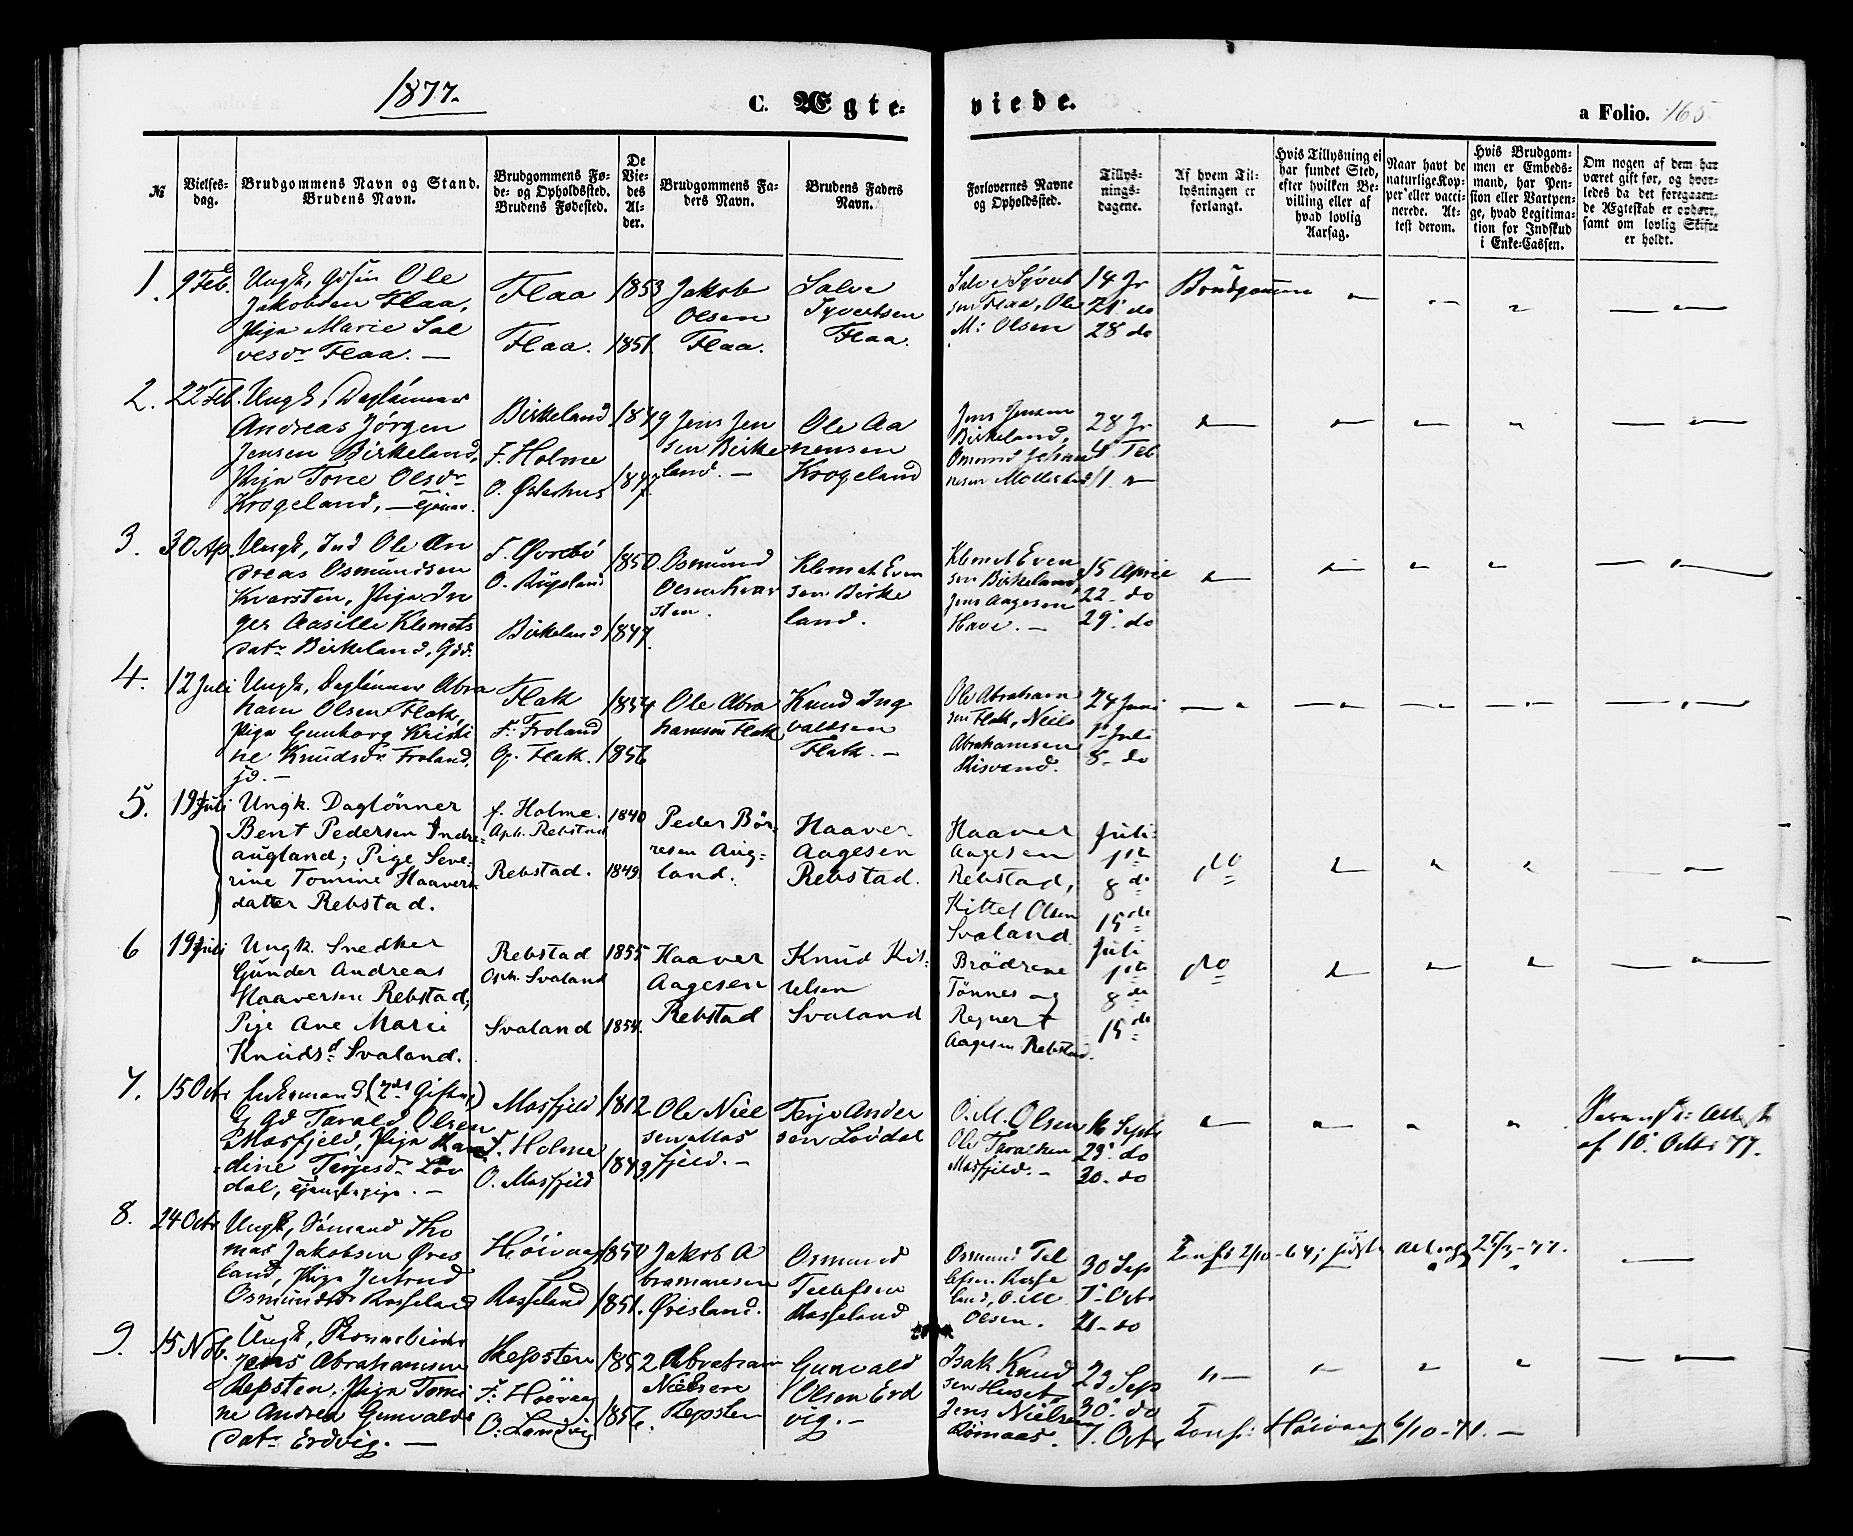 1877.
C. Ægte-
viede.
a Folio. 165
№
Vielses-
dag.
Brudgommens Navn og Stand.
Brudens Navn.
Brudgommens Fø-
de- og Opholdssted.
Brudens Fødested.
De
Vie-
des
Al-
der.
Brudgommens Fa-
ders Navn.
Brudens Faders
Navn.
Forlovernes Navne
og Opholdssted.
Tillys-
nings-
dagene.
Af hvem Til-
lysningen er
forlangt.
Hvis Tillysning ei
har fundet Sted,
efter hvilken Be-
villing eller af
hvad lovlig
Aarsag.
Naar havt de
naturlige Kop-
per eller vacci-
nerede. At-
test derom.
Hvis Brudgom-
men er Embeds-
mand, har Pen-
sion eller Vartpen-
ge, hvad Legitima-
tion for Indskud
i Enke-Cassen.
Om nogen af dem har
været gift før, og hvor-
ledes da det foregaaen-
de Ægteskab er
samt om lovlig Skifte
er holdt.
1.
9 Feb.
Ungk, Ole
Jakobsen Flaa,
Pige Marie Sal
vesdr Flaa. —
Flaa
Flaa.
1853
1851.
Jakob
Olsen
Flaa.
Salve
Syvertsen
Flaa.
Salve Syvert
sen Flaa, Ole
M: Olsen
14 Jr
21 do
28 do
Brudgommen
2.
22 Feb.
Ungk, Daglönner
Andreas Jörgen
Jensen Birkeland,
Pige Torie Olsdr
Krogeland, —
Birkeland
F. Holme
O. Østerhus
1849
1847.
Jens Jen
sen Birke
land. —
Ole Aa
nensen
Krogeland
Jens Jensen
Birkeland,
Osmund
28 Jr
4 Feb
11 "
3.
30 Ap.
Ungk, Ind Ole An
dreas Osmundsen
Kvarsten, Pige In
ger Aasille Klemets
datr Birkeland, Gdd.
F. Øvrebö
O. Rugsland
Birkeland
1850.
1847.
Osmund
Olsen Kvar
sten.
Klemet Even
sen Birke
land.
Klemet Even
sen Birkeland
Jens Aagesen
Have. —
15 April
22- do
29: do
4.
12 Juli
Ungk, Daglönner Abra
ham Olsen Flak,
Pige Gunborg Kristi
ne Knudsdr Froland.
Flak
F. Froland
Op. Flak.
1854
1856
Ole Abra
hamsen Flak
Knud Ing
valdsen
Flak. —
Ole Abraham
sen Flak, Niels
Abrahamsen
Risvand.
24 Juni
1- Juli
8- do
5.
19 Juli
Ungk. Daglönner
Bent Pedersen Indre-
augland; Pige Seve-
rine Tomine Haavers
datter Rebstad.
f. Holme.
Oph. Rebstad
Rebstad.
1840
1849
Peder Bör-
resen Aug-
land.
Haaver
Aagesen
Rebstad.
Haaver
Aagesen
Rebstad,
Kittel Olsen
Svaland
Juli-
1ste
8 de
15 de
do
6
19 Juli
Ungk. Snedker
Gunder Andreas
Haaversen Rebstad,
Pige Ane Marie
Knudsd. Svaland.
Rebstad
Oph. Svaland
Svaland
1855
1854.
Haaver
Aagesen
Rebstad
Knud Kit-
telsen
Svaland
Brödrene
Tönnes og
Regnert
Aagesen Rebstad.
Juli
1ste
8 de
15 de
do
7.
15 Octr
Enkemand (2den Giftm.)
Tarald Olsen
Masfjeld, Pige Kan
dine Terjesdr Löv
dal, —
Masfjeld
F. Holme
O. Masfjeld
1812
1843
Ole Niel
sen Mas
fjeld. —
Terje Ander
sen Lövdal
O. M. Olsen
Ole Taraldsen
Masfjeld. —
16 Septr
23: do
30- do
Attest
af 10: Octbr 77.
8.
24 Octr
Ungk, Sömand Tho
mas Jakobsen Øves
land, Pige Jertrud
Osmundsdr Rosseland
Höivaag
Rosseland
1850
1851.
Jakob A
bramsen
Øvesland.
Osmund
Tellefsen
Rosseland
Osmund Tel
lefsen Rosse
land, O. M.
Olsen.
30 Sep
7- Octr
21- do
Konf: 2/10-64; 25/3-77.
9.
15 Nob.
Ungk,
Jens Abrahamsen
Repsten, Pige Tomi
ne Andrea Gunvalds
datr Erdvig. —
Repsten
F. Höivaag
O. Landvig
1852
1856.
Abraham
Nielsen
Repsten
Gunvald
Olsen Erd
vig. —
Isak Knud
sen Huset
Jens Nielsen
Römaas.
23 Sep
30: do
7. Octr
Konf: Höivaag 6/10-71. —